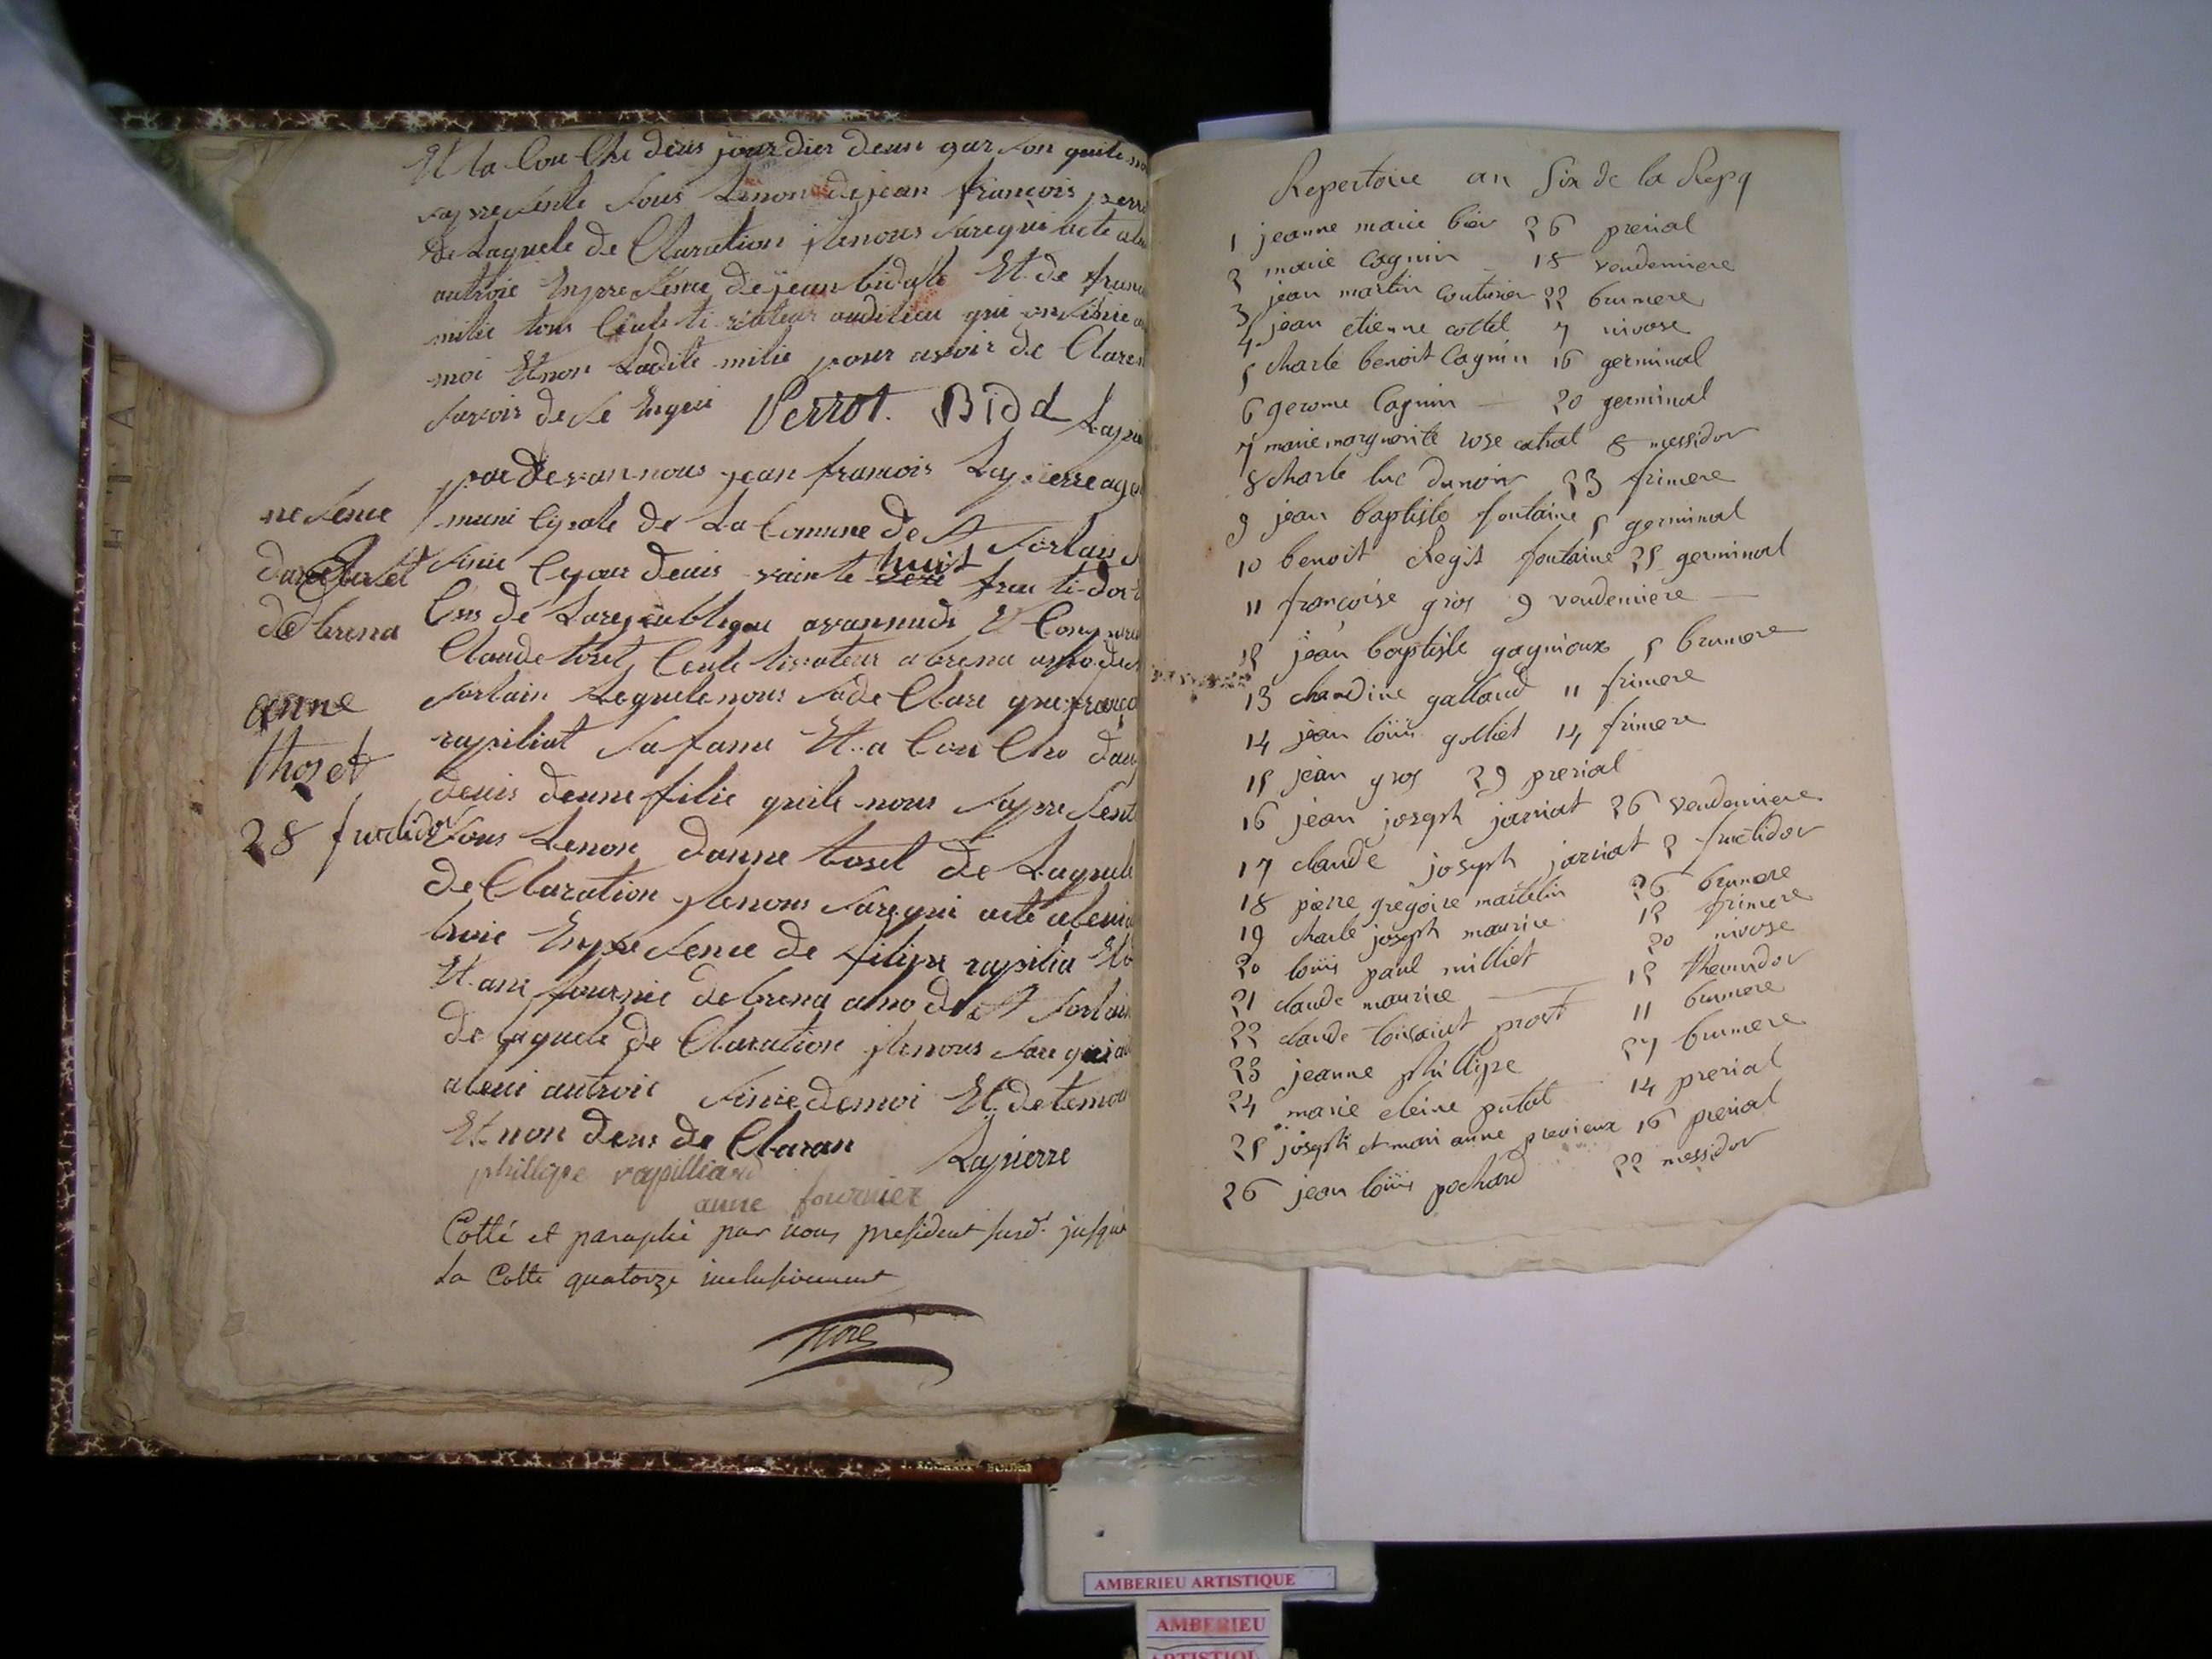 Et la Cou Che deius jour dier deun garson quile no
sapresente sous Lenom de jean francois perro
de Laquele de Claration jlenous sarequi acte
autroie Enpresence de jean bidalle Et de
milie tous
moi Et non Ladite milie pour avoir de Clare
savoir de se Enqui Perrot. Bidd Lapie
par de van nous jean francois Lapierre age
municipale de La Comune de St Sorlain
finie Ce jour deuis vainte huit fruc ti-dor
Cus de Larepeubleque avanmidi
Claude toset, Ceuletivateur a brena amo de
sorlain Lequele nous sade Clare que
rapiliat sa fame Et a Cou Che dau
deuis deune filie quile nous sapresent
sous Lenon danne toset de Laquele
de Claration jlenous sarequi acte
troie Enpresence de filipe rapilia
Et ane fournie de brena amo de St Sorlain
de laquele de Claration jlenous sarequi
aleui autroie sinie de moi Et detemoi
Et non deus de Claran Lapierre
phillipe rapilliard
anne fournier
Cotté et paraphé par nous president susd. jusqu'a
la Cotte quatorze inclusivement
ne sence
de brena
anne
thoset
28 fructidor
Repertoire an Six de la Repq
1 jeanne marie bior 26 prerial
2 marie Cagnin 18 vendemiere
3 jean martin Couturier 22 brumere
4 jean etienne cottel 7 nivose
5 charle benoit Cagnin 16 germinal
6 gerome Cagnin 20 germinal
7 marie margnorite rose catral 8 messidor
8 charle luc dunoir 23 frimere
9 jean baptiste fontaine 5 germinal
10 benoit Regis fontaine 25 germinal
11 françoise gros 9 vendemiere
12 jean baptiste gagnioux 5 brumere
13 claudine galland 11 frimere
14 jean loüis golliet 14 frimere
15 jean gros 29 prerial
16 jean joseph jarniat 26 vendemiere
17 claude joseph jarniat 2 fructidor
18 pierre gregoire martelin 26 brumere
19 charle joseph maurice 12 frimere
20 loüis paul milliet 20 nivose
21 claude maurice 12 thermidor
22 claude toisaint prost 11 brumere
23 jeanne phillipe 27 brumere
24 marie cleine putot 14 prerial
25 joseph et mari anne prerieux 16 prerial
26 jean loüis pochard 22 messidor
AMBERIEU ARTISTIQUE
AMBERIEU